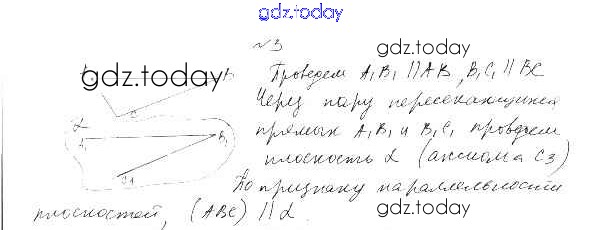 gdz.today
№3
gdz.today
Проведем A₁B₁ || AB, B₁C₁ || BC
gdz.today
B
C
Через пару пересекающихся
α
прямых A₁B₁ и B₁C₁ проведем
B₁
плоскость α (аксиома C₃)
C₁
По признаку параллельности
плоскостей, (ABC) || α.
gdz.today